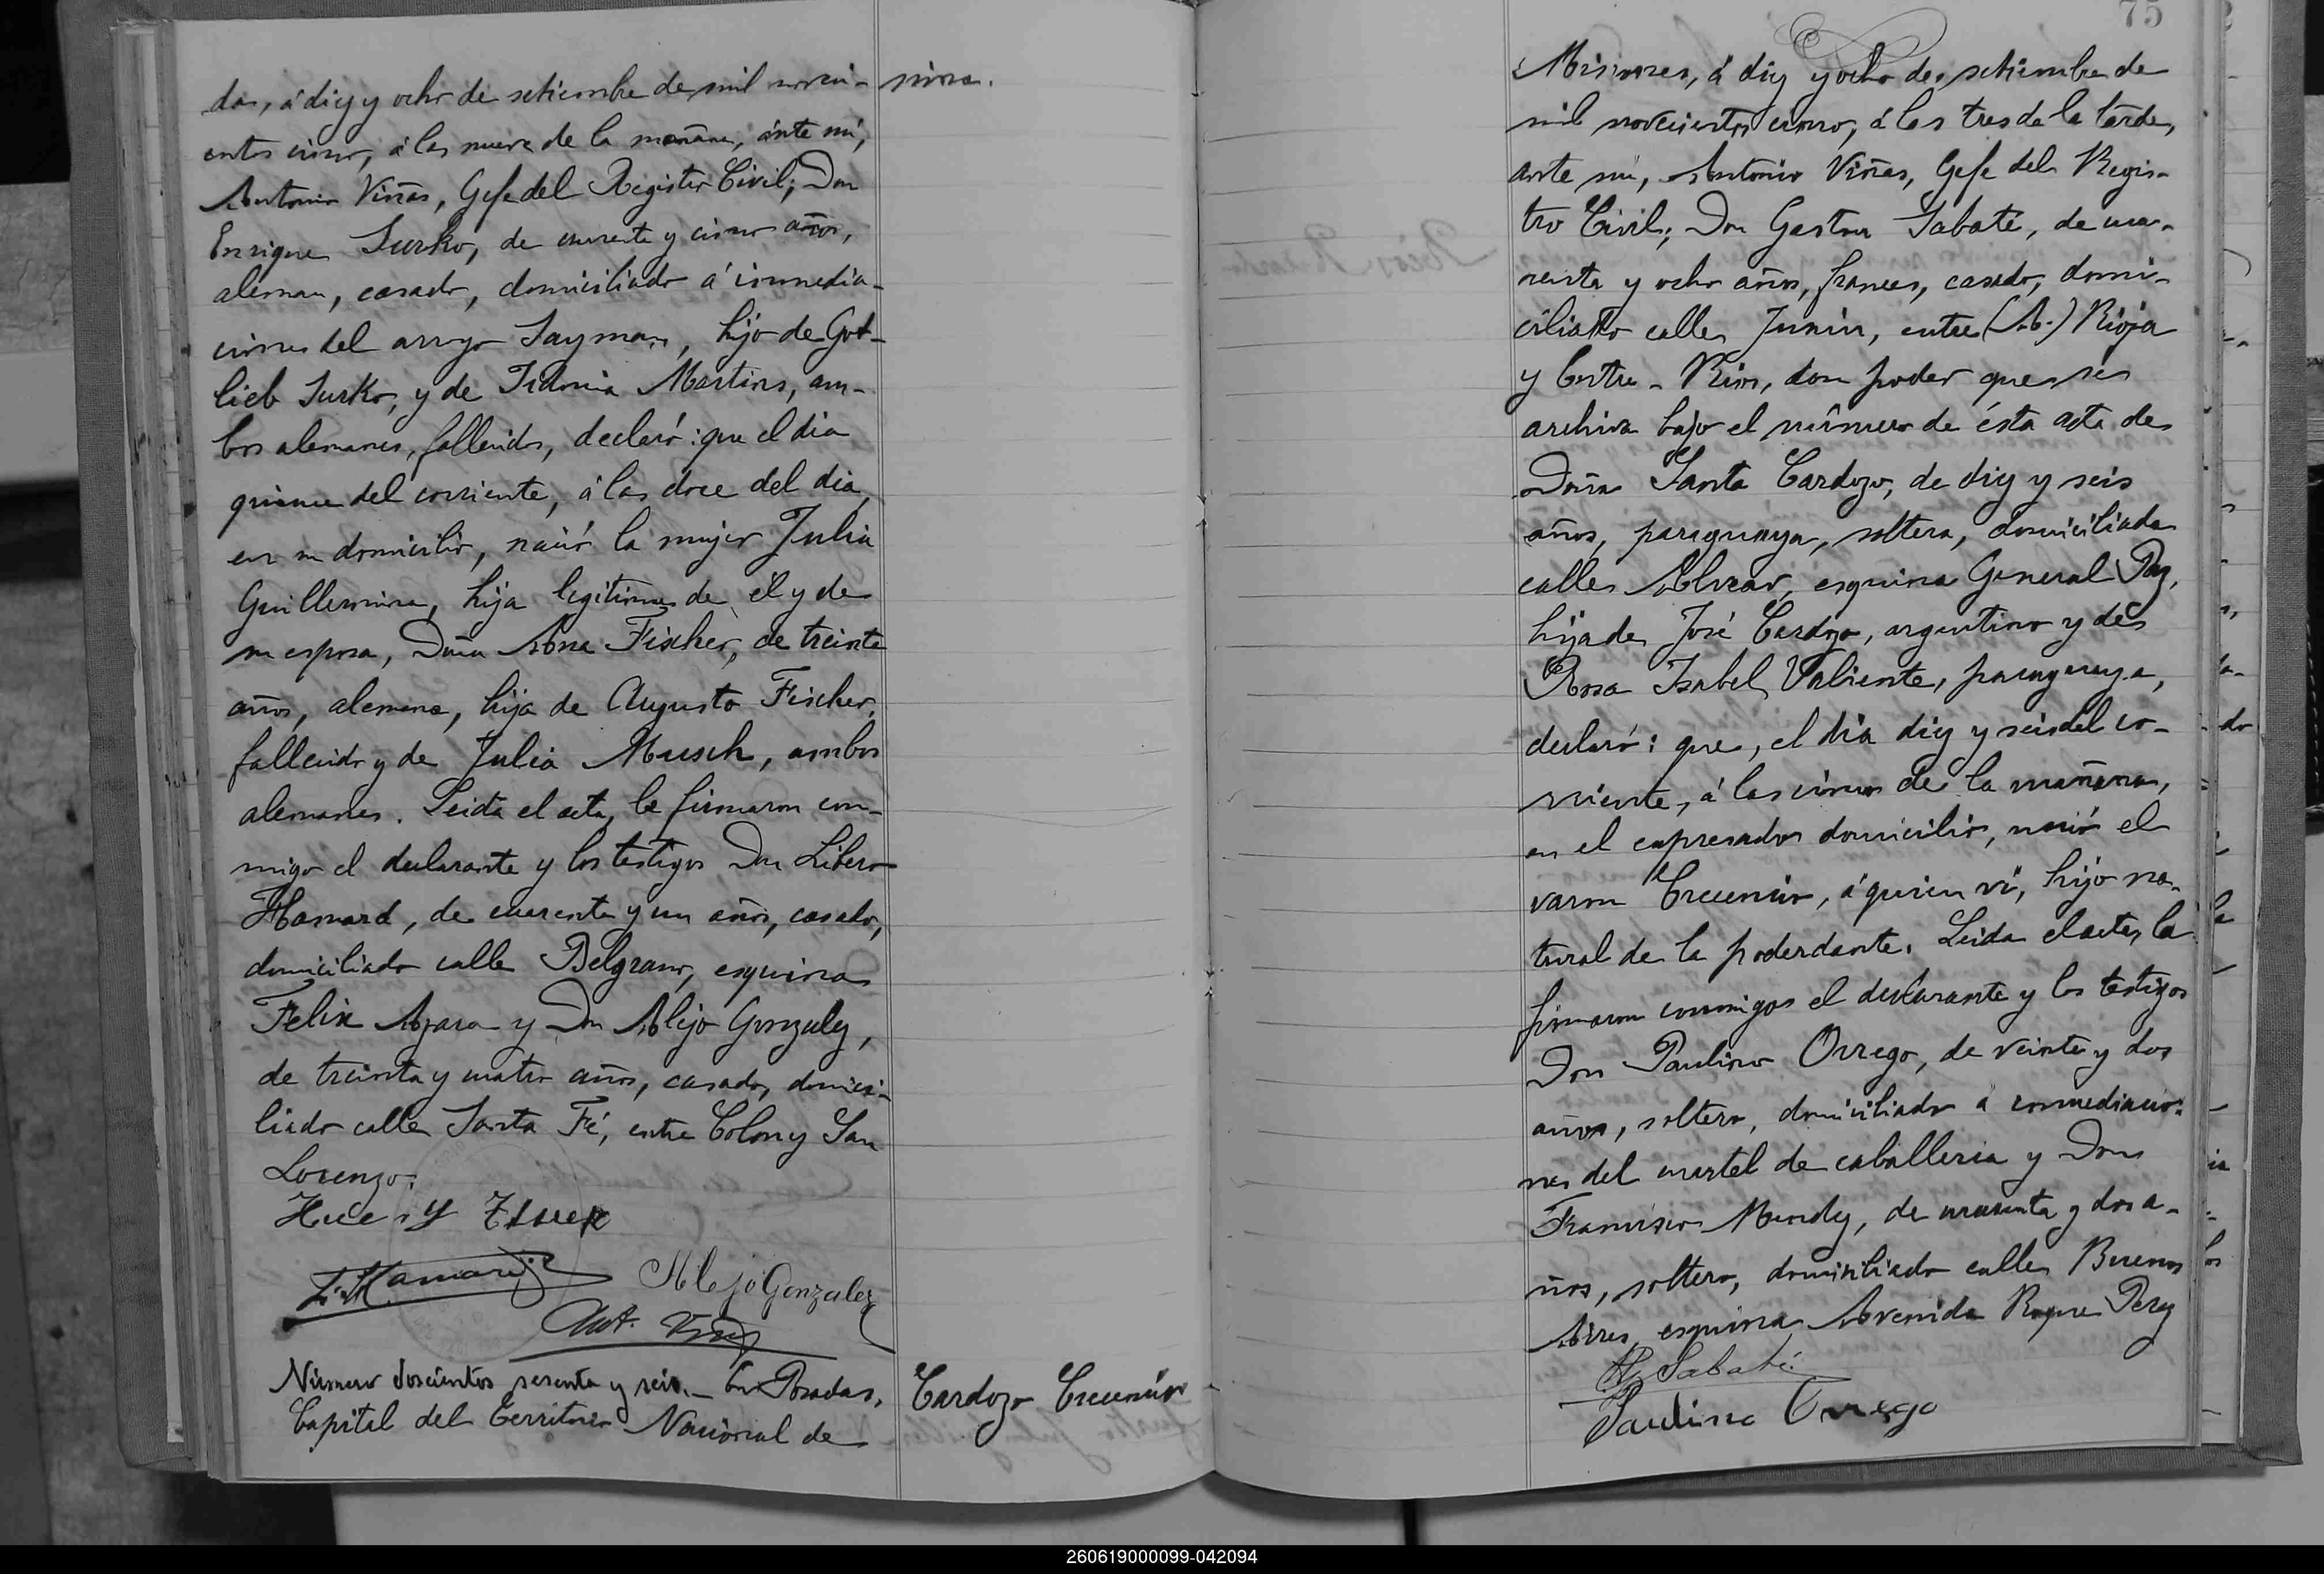 das, á diez y ocho de setiembre de mil noveci-
entos cinco, á las nueve de la mañana, ante mí,
Antonio Viñas, Gefe del Registro Civil; Don
Enrique Surko, de cuarenta y cinco años,
aleman, casado, domiciliado á inmedia-
ciones del arroyo Sayman, hijo de Got-
lieb Surko, y de Martins, am-
bos alemanes, fallecidos, declaró: que el dia
quince del corriente, á las doce del dia,
en su domicilio, nació la mujer Julia
Guillermina, hija legitima de él y de
su esposa, Doña Ana Fischer, de treinta
años, alemana, hija de Augusto Fischer,
fallecido y de Julia Musch, ambos
alemanes. Leida el acta, la firmaron con-
migo el declarante y los testigos Don Libero
Hamard, de cuarenta y un años, casado,
domiciliado calle Belgrano, esquina
Felix Azara y Don Alejo Gonzalez,
de treinta y cuatro años, casado, domici-
liado calle Santa Fé, entre Colon y San
Lorenzo.
L. Hamard
Alejo Gonzalez
Ant. Viñas
Número doscientos sesenta y seis.- En Posadas,
Capital del Territorio Nacional de
mina.
Cardozo Crecencio
75
Misiones, á diez y ocho de setiembre de
mil novecientos cinco, á las tres de la tarde,
ante mí, Antonio Viñas, Gefe del Regis-
tro Civil; Don Gaston Sabaté, de cua-
renta y ocho años, frances, casado, domi-
ciliado calle Junin, entre (A.) Rioja
y Entre-Rios, con poder que se
archiva bajo el número de ésta acta de
Doña Santa Cardozo, de diez y seis
años, paraguaya, soltera, domiciliada
calle Alvear, esquina General Paz,
hija de José Cardozo, argentino y de
Rosa Isabel Valiente, paraguaya,
declaró: que, el dia diez y seis del co-
rriente, á las cinco de la mañana,
en el expresado domicilio, nació el
varon Crecencio, á quien ví, hijo na-
tural de la poderdante. Leida el acta, la
firmaron conmigo el declarante y los testigos
Don Paulino Orrego, de veinte y dos
años, soltero, domiciliado á inmediacio-
nes del cuartel de caballeria y Don
Francisco Mendez, de cuarenta y dos a-
ños, soltero, domiciliado calle Buenos
Aires esquina Avenida Roque Perez
G. Sabaté
Paulino Orrego
260619000099-042094